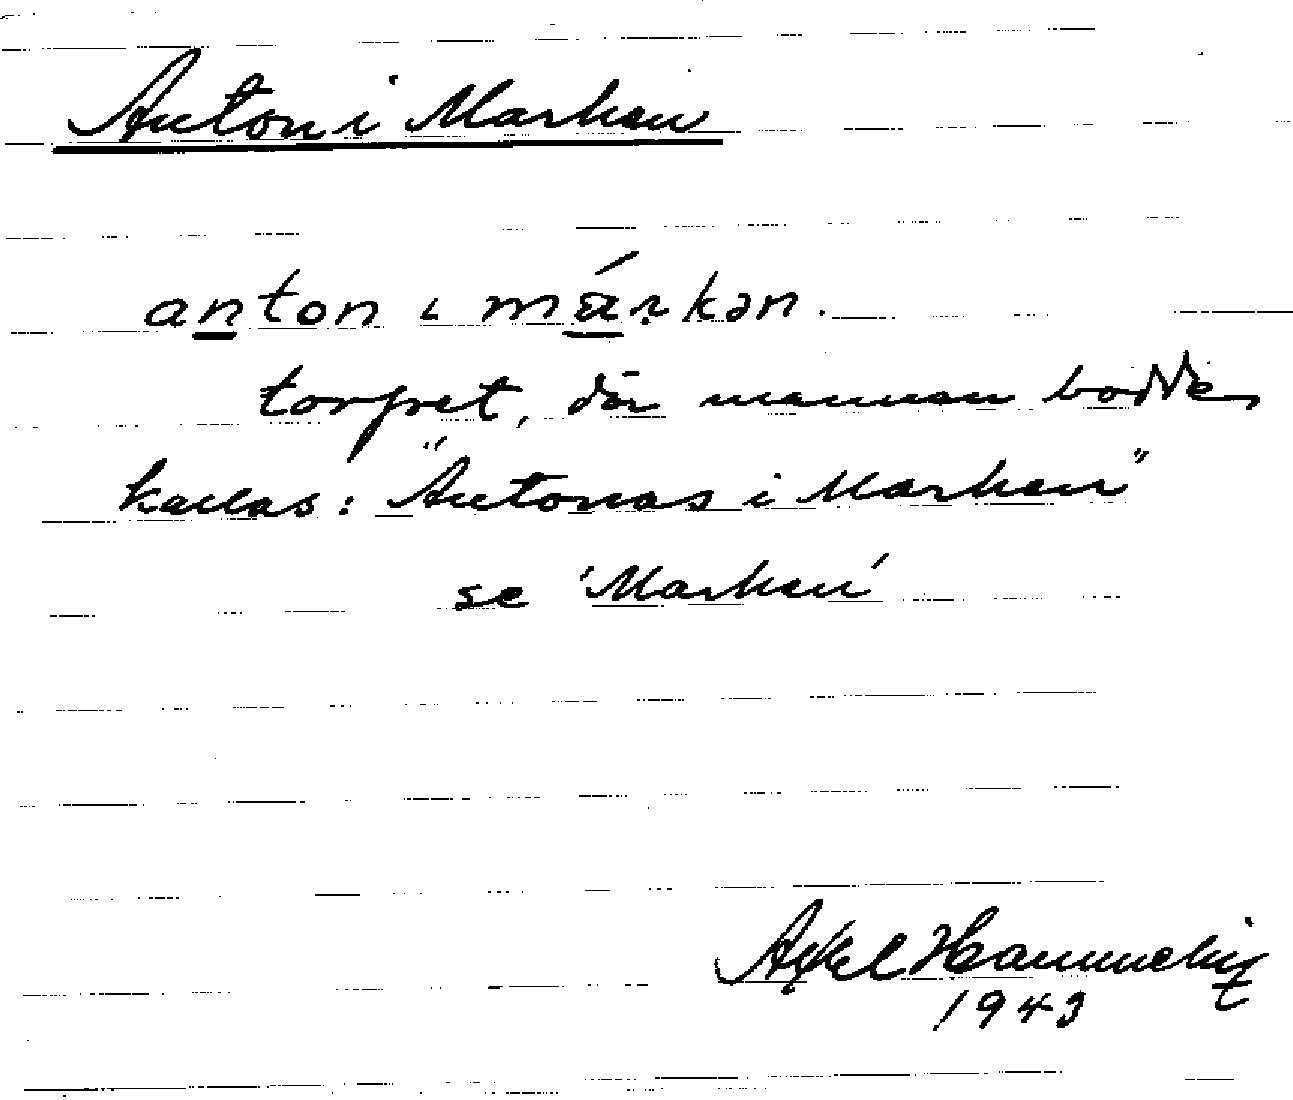 Anton i Marken
anton ɩ márkən.
torpet, där mannen bodde,
kallas: "Antonas i Marken"
se 'Marken'
Axel
1943